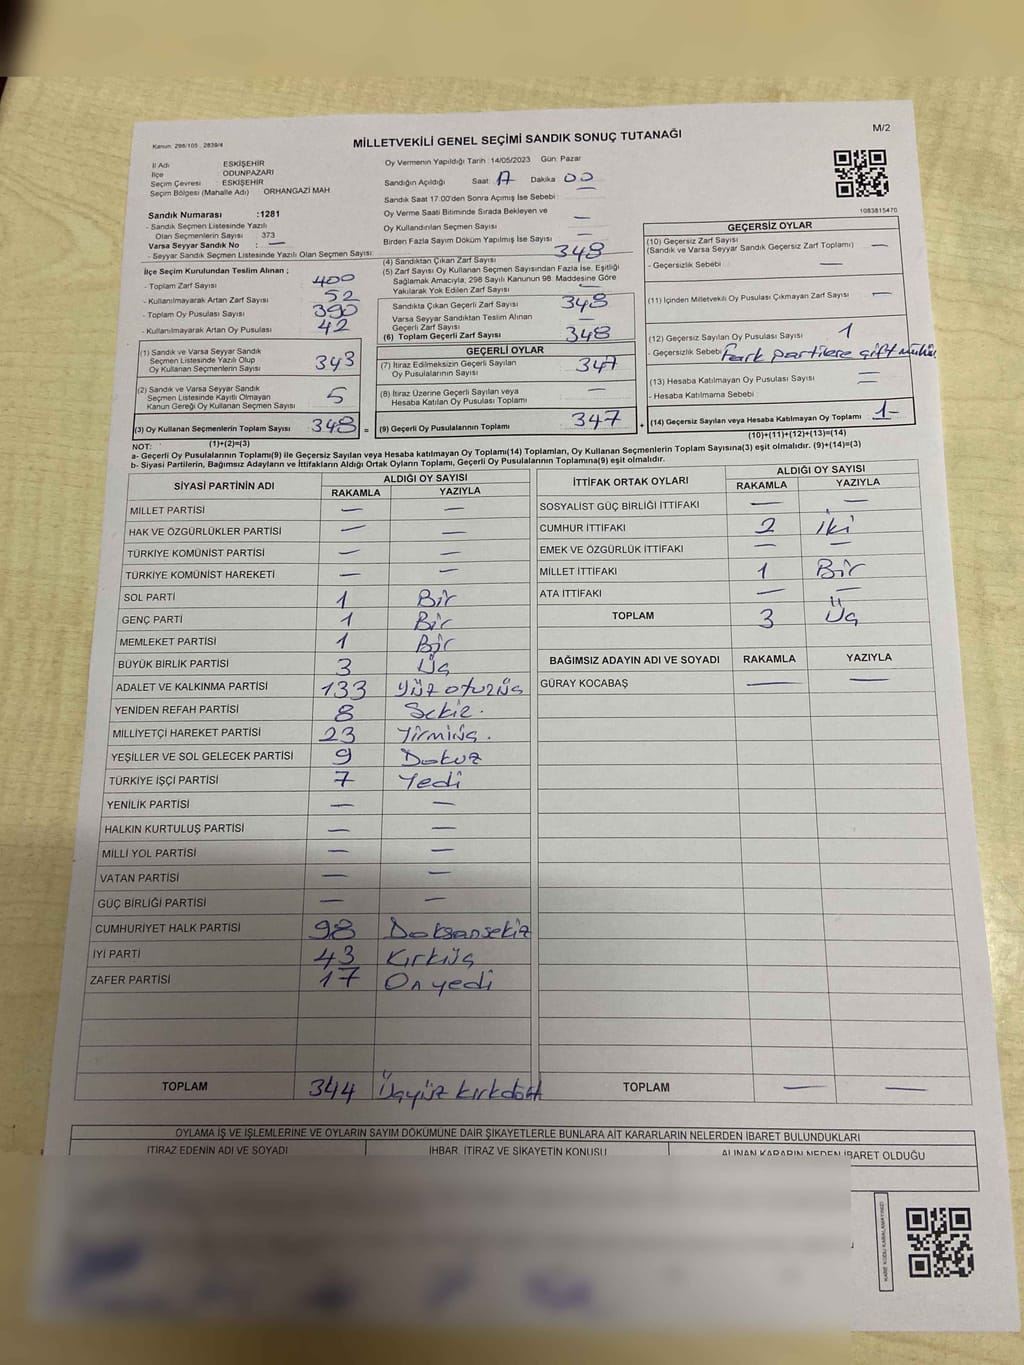 Kanun: 298/105 , 2839/4
MİLLETVEKİLİ GENEL SEÇİMİ SANDIK SONUÇ TUTANAĞI
M/2
İl Adı ESKİŞEHİR
İlçe ODUNPAZARI
Seçim Çevresi ESKİŞEHİR
Seçim Bölgesi (Mahalle Adı) ORHANGAZİ MAH
Oy Vermenin Yapıldığı Tarih : 14/05/2023 Gün: Pazar
Sandığın Açıldığı Saat: 17 Dakika 00
Sandık Saat 17:00'den Sonra Açımış İse Sebebi : —
Oy Verme Saati Bitiminde Sırada Bekleyen ve
Oy Kullandırılan Seçmen Sayısı —
Birden Fazla Sayım Döküm Yapılmış İse Sayısı —
1083815470
Sandık Numarası :1281
- Sandık Seçmen Listesinde Yazılı
Olan Seçmenlerin Sayısı 373
Varsa Seyyar Sandık No : —
- Seyyar Sandık Seçmen Listesinde Yazılı Olan Seçmen Sayısı:
İlçe Seçim Kurulundan Teslim Alınan ;
- Toplam Zarf Sayısı 400
- Kullanılmayarak Artan Zarf Sayısı 52
- Toplam Oy Pusulası Sayısı 390
- Kullanılmayarak Artan Oy Pusulası 42
(1) Sandık ve Varsa Seyyar Sandık
Seçmen Listesinde Yazılı Olup
Oy Kullanan Seçmenlerin Sayısı 343
(2) Sandık ve Varsa Seyyar Sandık
Seçmen Listesinde Kayıtlı Olmayan
Kanun Gereği Oy Kullanan Seçmen Sayısı 5
(3) Oy Kullanan Seçmenlerin Toplam Sayısı 348 =
(1)+(2)=(3)
(4) Sandıktan Çıkan Zarf Sayısı 348
(5) Zarf Sayısı Oy Kullanan Seçmen Sayısından Fazla İse, Eşitliği
Sağlamak Amacıyla, 298 Sayılı Kanunun 98. Maddesine Göre
Yakılarak Yok Edilen Zarf Sayısı —
Sandıkta Çıkan Geçerli Zarf Sayısı 348
Varsa Seyyar Sandıktan Teslim Alınan
Geçerli Zarf Sayısı —
(6) Toplam Geçerli Zarf Sayısı 348
GEÇERLİ OYLAR
(7) İtiraz Edilmeksizin Geçerli Sayılan
Oy Pusulalarının Sayısı 347
(8) İtiraz Üzerine Geçerli Sayılan veya
Hesaba Katılan Oy Pusulası Toplamı —
(9) Geçerli Oy Pusulalarının Toplamı 347 +
GEÇERSİZ OYLAR
(10) Geçersiz Zarf Sayısı
(Sandık ve Varsa Seyyar Sandık Geçersiz Zarf Toplamı) —
- Geçersizlik Sebebi —
(11) İçinden Milletvekili Oy Pusulası Çıkmayan Zarf Sayısı —
(12) Geçersiz Sayılan Oy Pusulası Sayısı 1
- Geçersizlik Sebebi Fark partilere çift mühür
(13) Hesaba Katılmayan Oy Pusulası Sayısı —
- Hesaba Katılmama Sebebi —
(14) Geçersiz Sayılan veya Hesaba Katılmayan Oy Toplamı 1-
(10)+(11)+(12)+(13)=(14)
NOT:
a- Geçerli Oy Pusulalarının Toplamı(9) ile Geçersiz Sayılan veya Hesaba katılmayan Oy Toplamı(14) Toplamları, Oy Kullanan Seçmenlerin Toplam Sayısına(3) eşit olmalıdır. (9)+(14)=(3)
b- Siyasi Partilerin, Bağımsız Adayların ve İttifakların Aldığı Ortak Oyların Toplamı, Geçerli Oy Pusulalarının Toplamına(9) eşit olmalıdır.
SİYASİ PARTİNİN ADI ALDIĞI OY SAYISI
RAKAMLA YAZIYLA
MİLLET PARTİSİ — —
HAK VE ÖZGÜRLÜKLER PARTİSİ — —
TÜRKİYE KOMÜNİST PARTİSİ — —
TÜRKİYE KOMÜNİST HAREKETİ — —
SOL PARTİ 1 Bir
GENÇ PARTİ 1 Bir
MEMLEKET PARTİSİ 1 Bir
BÜYÜK BİRLİK PARTİSİ 3 Üç
ADALET VE KALKINMA PARTİSİ 133 Yüz otuzüç
YENİDEN REFAH PARTİSİ 8 Sekiz.
MİLLİYETÇİ HAREKET PARTİSİ 23 Yirmiüç.
YEŞİLLER VE SOL GELECEK PARTİSİ 9 Dokuz
TÜRKİYE İŞÇİ PARTİSİ 7 Yedi
YENİLİK PARTİSİ — —
HALKIN KURTULUŞ PARTİSİ — —
MİLLİ YOL PARTİSİ — —
VATAN PARTİSİ — —
GÜÇ BİRLİĞİ PARTİSİ — —
CUMHURİYET HALK PARTİSİ 98 Doksansekiz
İYİ PARTİ 43 Kırküç
ZAFER PARTİSİ 17 Onyedi
TOPLAM 344 Üçyüz kırkdört
İTTİFAK ORTAK OYLARI ALDIĞI OY SAYISI
RAKAMLA YAZIYLA
SOSYALİST GÜÇ BİRLİĞİ İTTİFAKI — —
CUMHUR İTTİFAKI 2 İki
EMEK VE ÖZGÜRLÜK İTTİFAKI — —
MİLLET İTTİFAKI 1 Bir
ATA İTTİFAKI — —
TOPLAM 3 Üç
BAĞIMSIZ ADAYIN ADI VE SOYADI RAKAMLA YAZIYLA
GÜRAY KOCABAŞ — —
TOPLAM — —
OYLAMA İŞ VE İŞLEMLERİNE VE OYLARIN SAYIM DÖKÜMÜNE DAİR ŞİKAYETLERLE BUNLARA AİT KARARLARIN NELERDEN İBARET BULUNDUKLARI
İTİRAZ EDENİN ADI VE SOYADI İHBAR, İTİRAZ VE ŞİKAYETİN KONUSU ALINAN KARARIN NEDEN İBARET OLDUĞU
KARE KODU KARALAMAYINIZ!